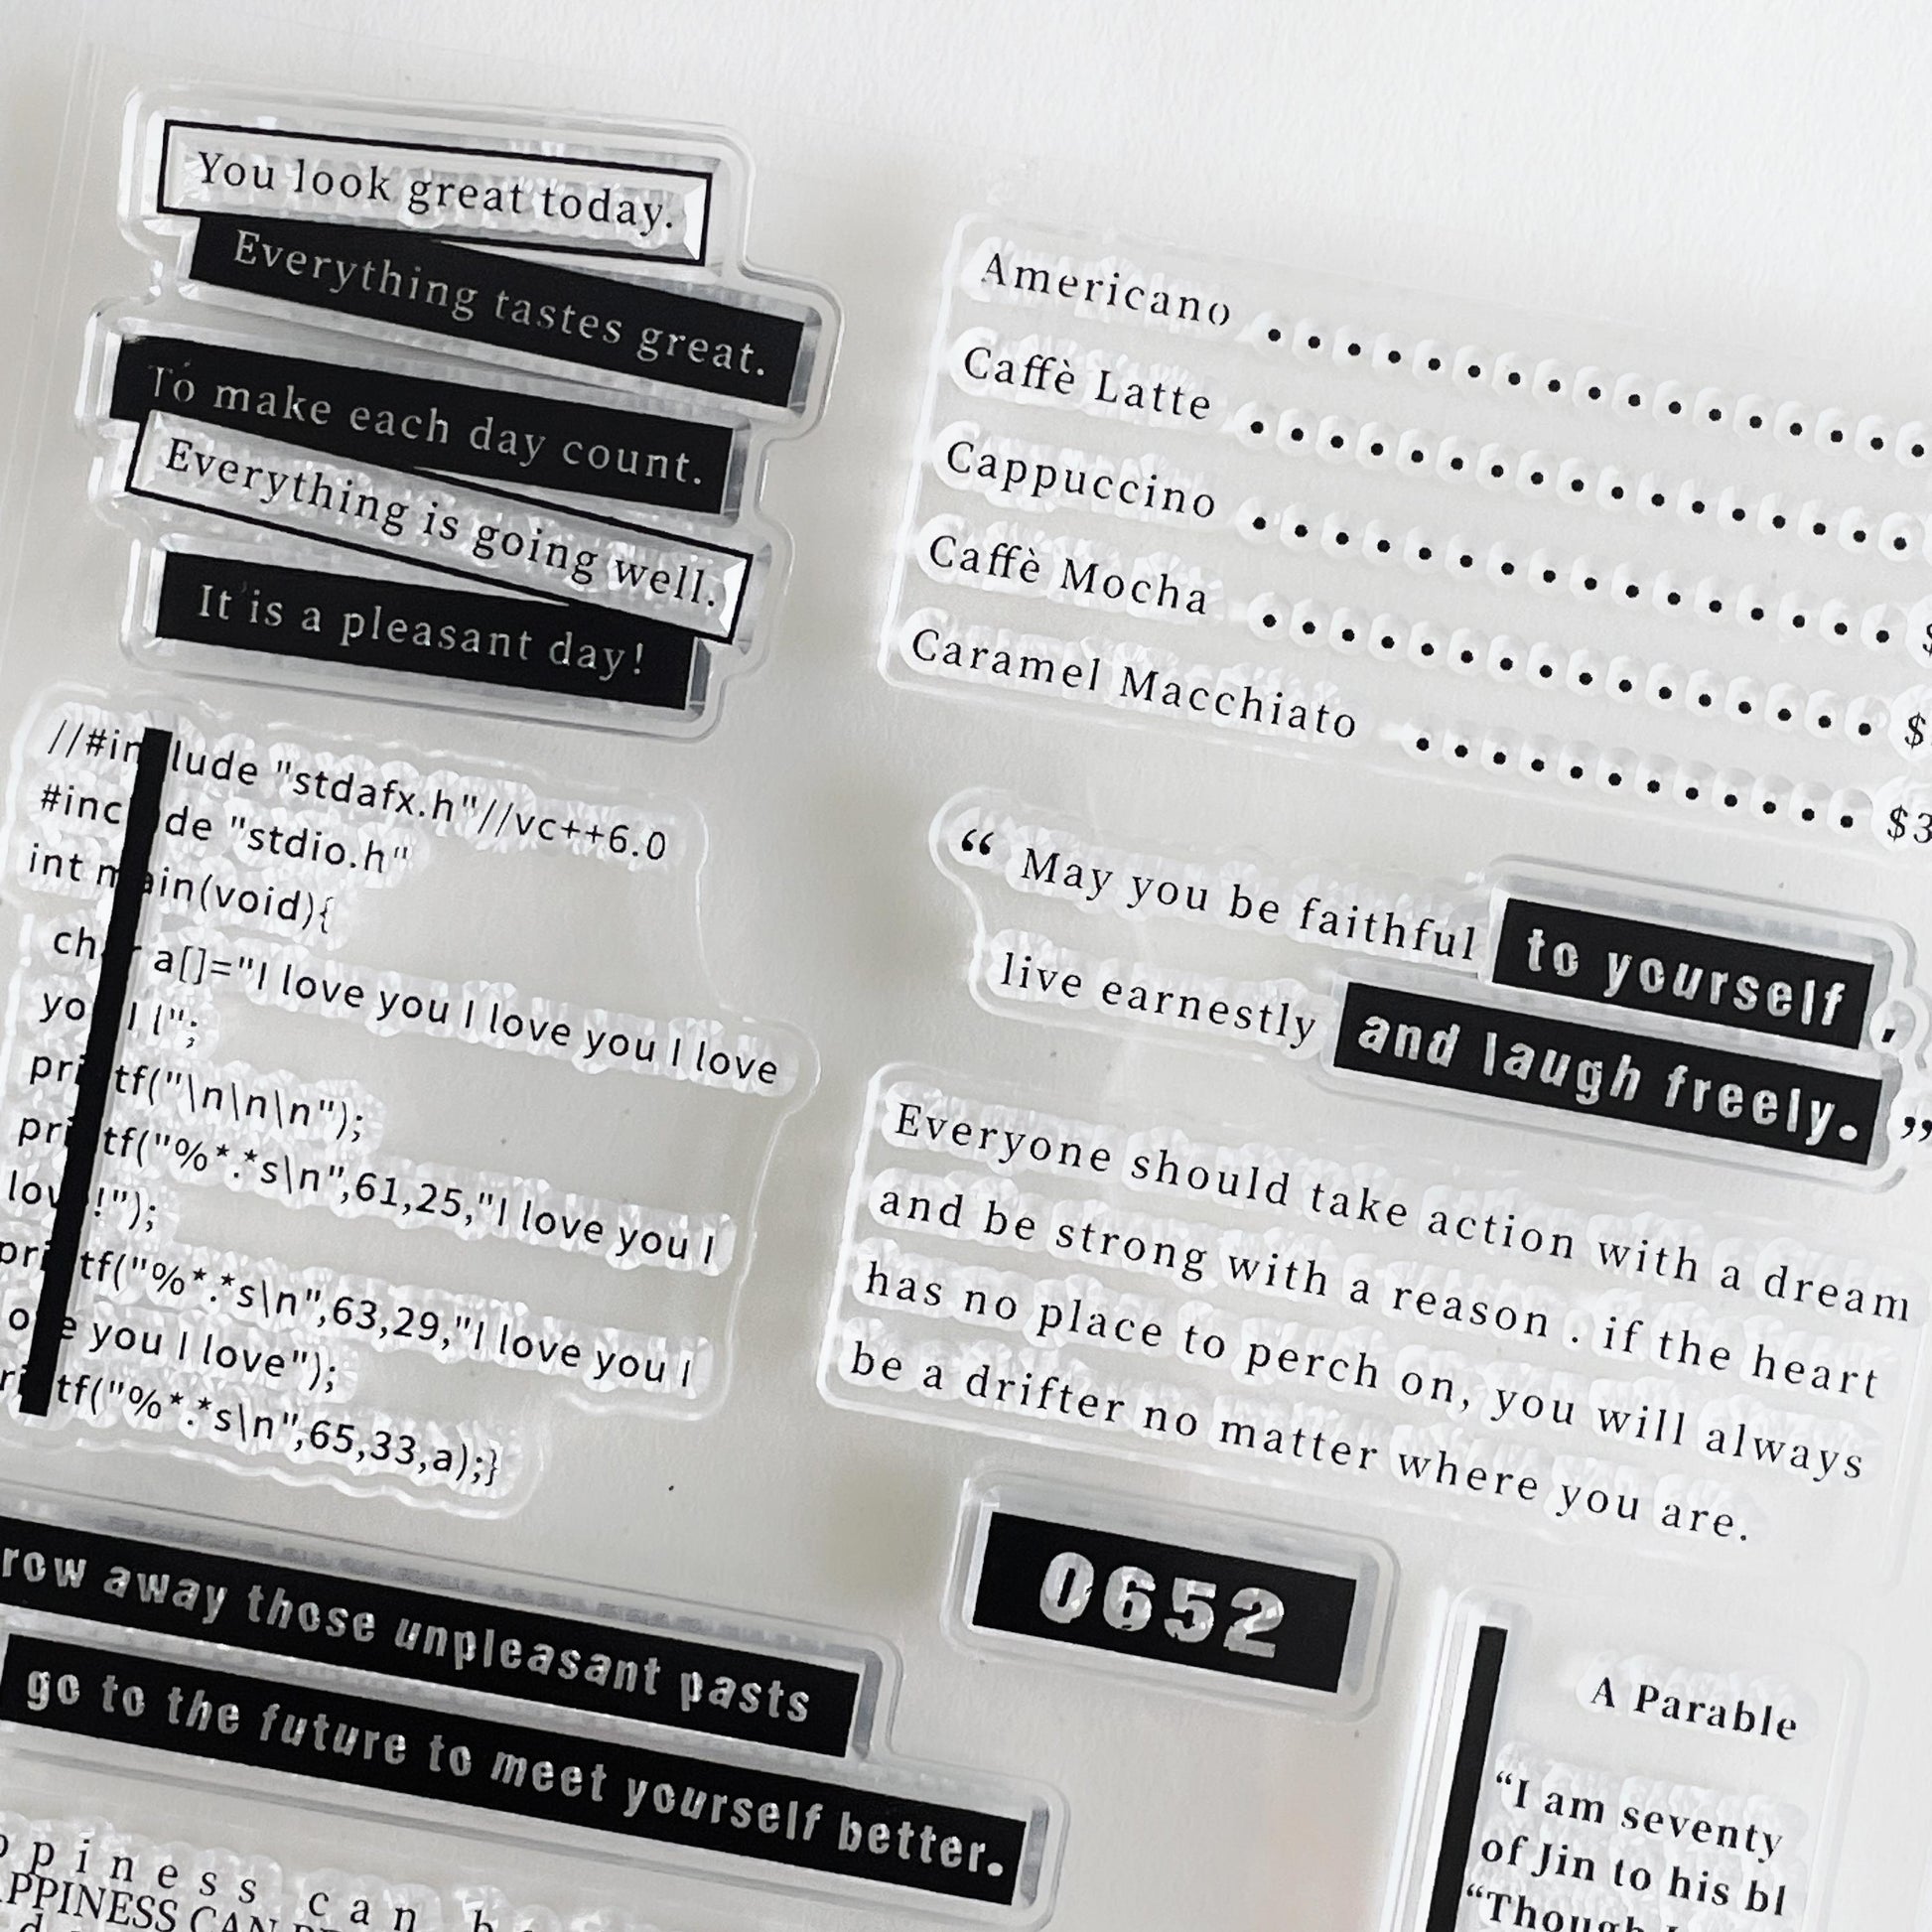 You look great today.
Everything tastes great.
To make each day count.
Everything is going well.
It is a pleasant day!
Americano ..................
Caffè Latte .................
Cappuccino ................ $
Caffè Mocha ................ $
Caramel Macchiato ............ $3
//#in lude "stdafx.h"//vc++6.0
#inc de "stdio.h"
int main(void){
ch r a[]="I love you I love you I love
yo I l";
pri tf("\n\n\n");
pri tf("%*.*s\n",61,25,"I love you I
lov !");
pri tf("%*.*s\n",63,29,"I love you I
o e you I love");
ri tf("%*.*s\n",65,33,a);}
“ May you be faithful to yourself ,
live earnestly and laugh freely. ”
Everyone should take action with a dream
and be strong with a reason . if the heart
has no place to perch on, you will always
be a drifter no matter where you are.
0652
row away those unpleasant pasts
go to the future to meet yourself better.
A Parable
“I am seventy
of Jin to his bl
piness can
PPINESS CAN